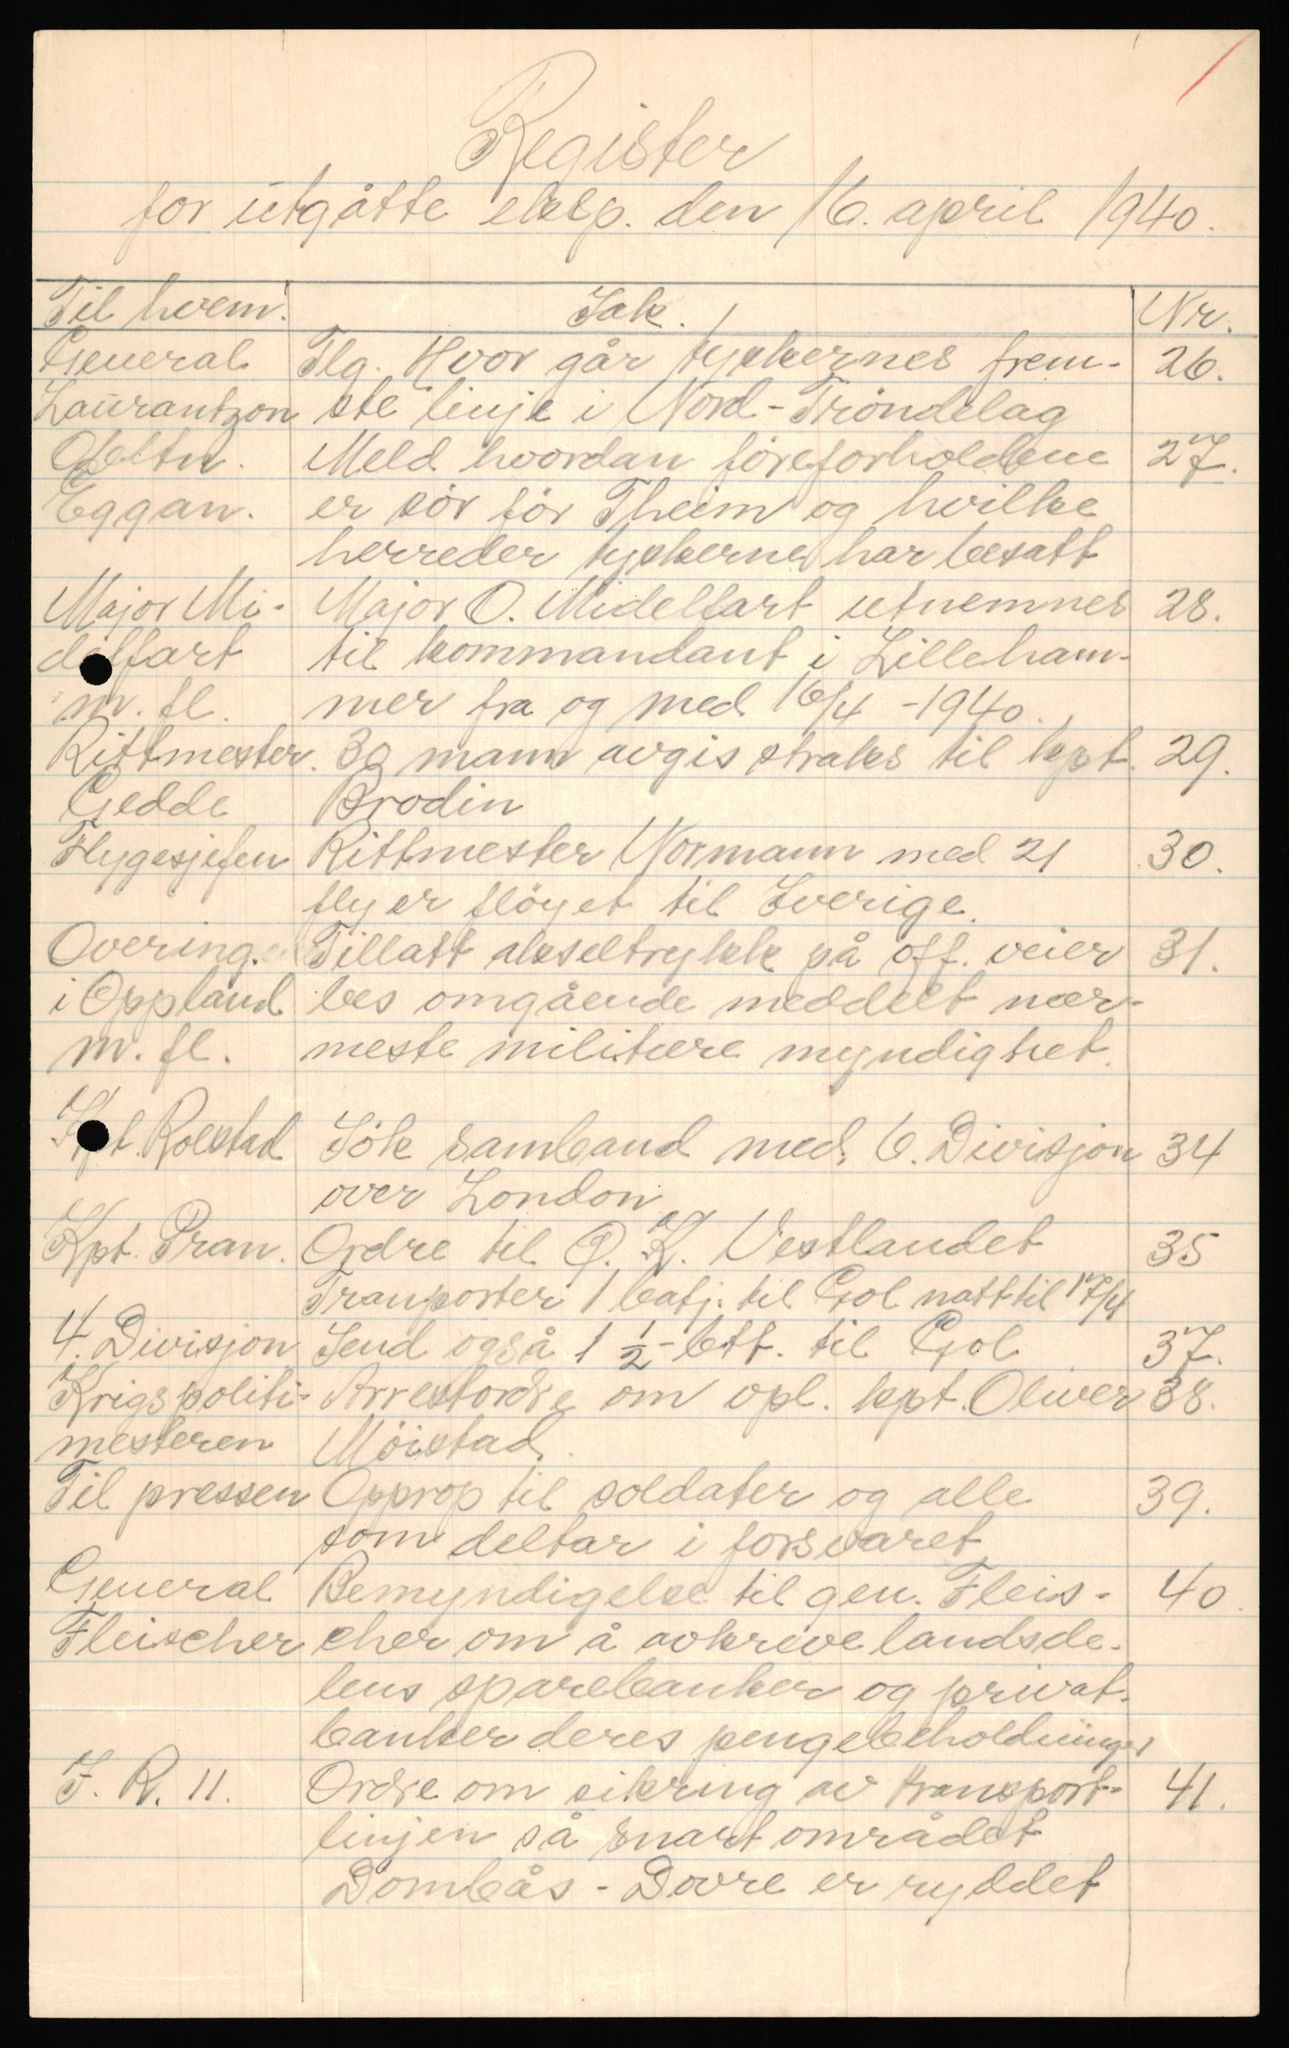 Register
for utgåtte eksp. den 16. april 1940.
Til hvem. Sak. Nr.
General Tlg. Hvor går tyskernes frem- 26.
Laurantzon ste linje i Nord-Tröndelag
Obltn. Meld hvordan föreforholdene 27.
Eggan. er sör for Theim og hvilke
herreder tyskerne har besatt
Major Mi- Major O. Midelfart utnemnes 28.
delfart til kommandant i Lilleham-
m. fl. mer fra og med 16/4 -1940.
Rittmester. 30 mann avgis straks til kpt. 29.
Gedde Brodin
Flygesjefen Rittmester Normann med 21 30.
fly er flöyet til Sverige.
Overing. Tillatt akseltrykk på off. veier 31.
i Oppland bes omgående meddelt nær-
m. fl. meste militære myndighet.
Kpt. Rolstad Sök samband med 6. Divisjon 34
over London
Kpt. Pran. Ordre til Ö. K. Vestlandet 35
Tranporter 1 batj. til Gol natt til 17/4
4. Divisjon Send også 1 1/2 btt. til Gol 37.
Krigspoliti- Arrestordre om vpl. kpt. Oliver 38.
mesteren Möistad.
Til pressen Opprop til soldater og alle 39.
som deltar i forsvaret
General Bemyndigelse til gen. Fleis- 40.
Fleischer cher om å avkreve landsde-
lens sparebanker og privat-
banker deres pengebeholdninger
I. R. 11. Ordre om sikring av transport- 41.
linjen så snart området
Dombås - Dovre er ryddet